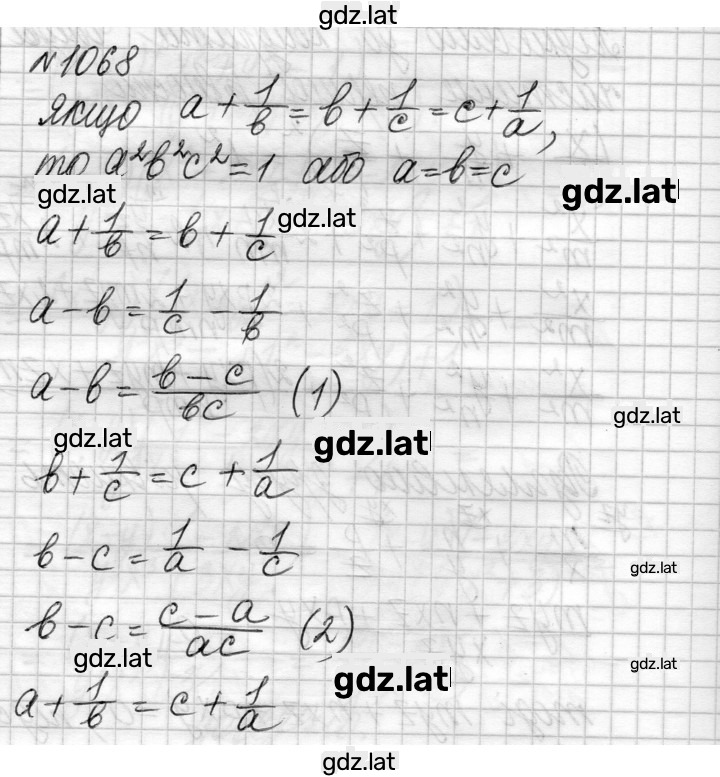 gdz.lat
№1068
якщо a + 1/b = b + 1/c = c + 1/a,
то a²b²c² = 1 або a = b = c
gdz.lat
gdz.lat
gdz.lat
a + 1/b = b + 1/c
a - b = 1/c - 1/b
a - b = (b - c)/(bc) (1)
gdz.lat
gdz.lat
gdz.lat
b + 1/c = c + 1/a
b - c = 1/a - 1/c
gdz.lat
b - c = (c - a)/(ac) (2)
gdz.lat
gdz.lat
gdz.lat
a + 1/b = c + 1/a
gdz.lat